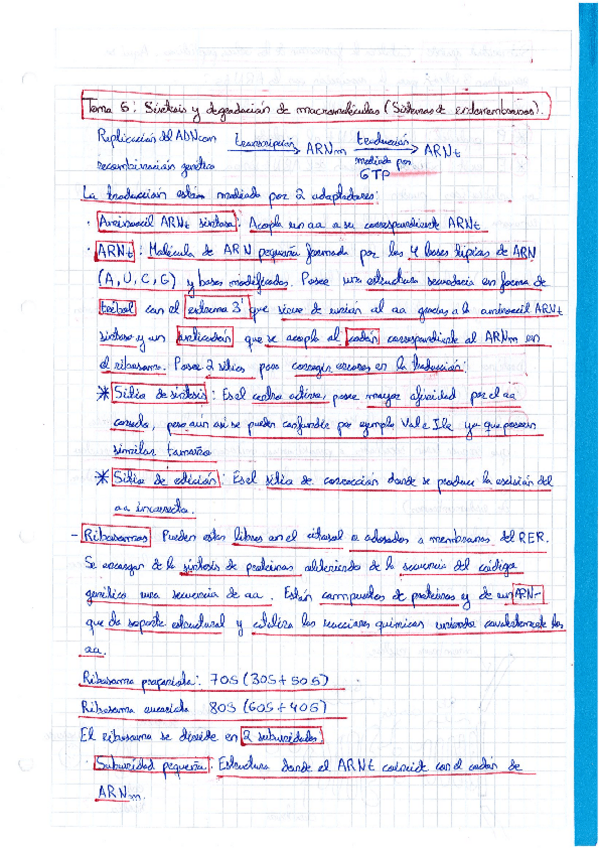 Tema 6: Síntesis y degradación de macromoléculas (Sistemas de endomembranas).
Replicación del ADN con transcripción ARNm traducción ARNt
recombinación genética mediada por
GTP
La traducción están mediada por 2 adaptadores:
· Aminoacil ARNt sintetasa: Acopla un aa a su correspondiente ARNt
· ARNt: Molécula de ARN pequeña formada por las 4 bases típicas de ARN
(A, U, C, G) y bases modificadas. Posee una estructura secundaria en forma de
trébol con el extremo 3' que sirve de unión al aa gracias a la aminoacil ARNt
sintetasa y un anticodón que se acopla al codón correspondiente al ARNm en
el ribosoma. Posee 2 sitios para corregir errores en la traducción:
* Sitio de síntesis: Es el centro activo, posee mayor afinidad por el aa
correcto, pero aún así se pueden confundir por ejemplo Val e Ile ya que poseen
similar tamaño
* Sitio de edición: Es el sitio de corrección donde se produce la escisión del
aa incorrecto.
- Ribosomas: Pueden estar libres en el citosol o adosados a membranas del RER.
Se encargan de la síntesis de proteínas obteniendo de la secuencia del código
genético una secuencia de aa. Están compuestos de proteínas y de un ARNr
que da soporte estructural y cataliza las reacciones químicas uniendo covalentemente los
aa.
Ribosoma procariota: 70S (30S + 50S)
Ribosoma eucariota 80S (60S + 40S)
El ribosoma se divide en 2 subunidades
· Subunidad pequeña: Estructura donde el ARNt coincide con el codón de
ARNm.